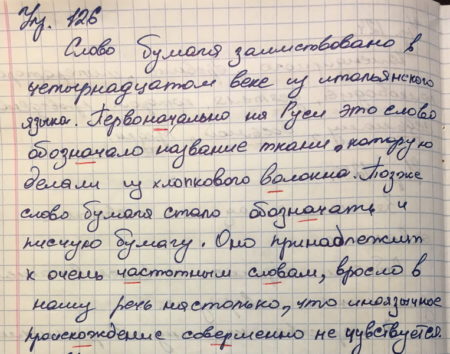 Уп. 126
Слово бумага заимствовано в
четырнадцатом веке из итальянского
языка. Первоначально на Руси это слово
обозначало название ткани, которую
делали из хлопкового волокна. Позже
слово бумага стало обозначать и
писчую бумагу. Оно принадлежит
к очень частотным словам, вросло в
нашу речь настолько, что иноязычное
происхождение совершенно не чувствуется.